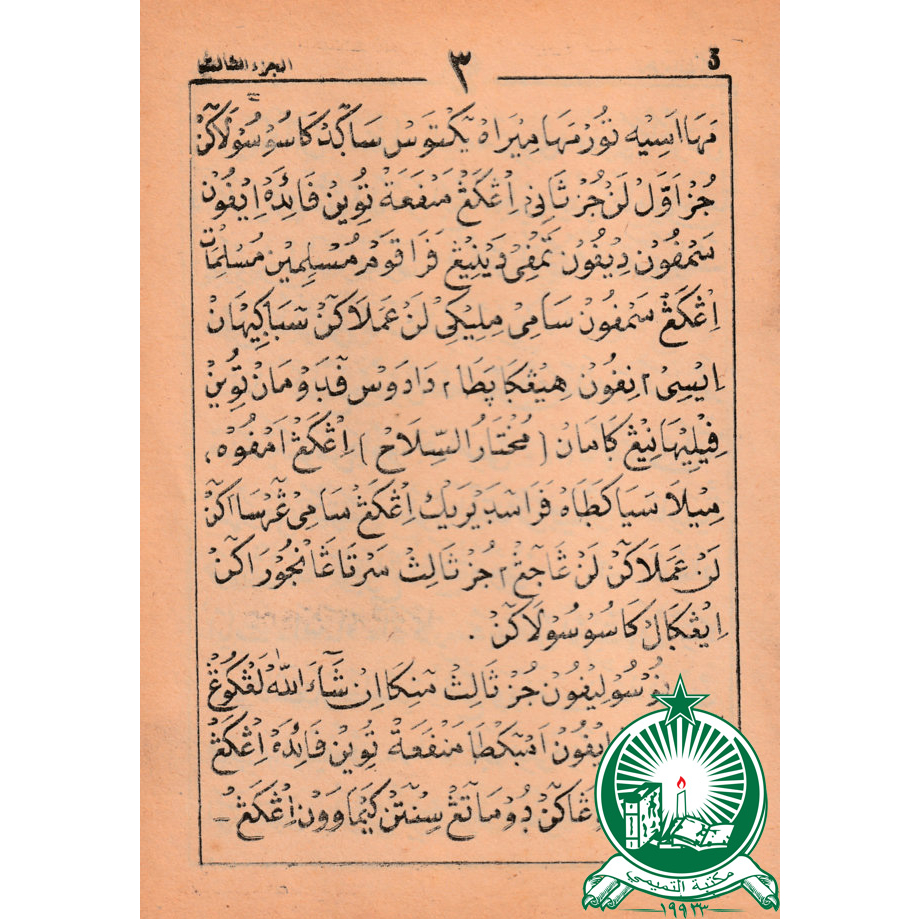 3 ٣ الجزء الثالث
مَهَا اَسِيه تُوْرْ مَهَا مِيْرَاهْ يَكْتوَسْ سَاڬَٓدْ كَاسُوْسُوْلَاكَٓنْ
جُزْ اَوَّلْ لَنْ جُزْ ثَانِيْ اِڠْكَڠْ مَنْفَعَةْ تُوِيْنْ فَائِدَهْ اِيْفُوْنْ
سَمْفُوْنْ دِيْفُوْنْ تَمْفِيْ دَيْنِيْڠْ فَرَا قَوْمْ مُسْلِمِيْنْ مُسْلِمَاتْ
اِڠْكَڠْ سَمْفُوْنْ سَامِيْ مِلِيْكِيْ لَنْ عَمَلَاكَٓنْ سَٓبَاڬِيْهَانْ
اِيْسِيْ٢ نِفُوْنْ هِيْڠْڬَا پَطَا٢ دَادَوْسْ فَٓدَوْمَانْ تُوِيْنْ
فِيْلِيْهَانِيْڠْ ڬَامَانْ (مُخْتَارُ السِّلَاحْ) اِڠْكَڠْ اَمْفُوْهْ،
مِيْلَا سَيَاكَطَاهْ فَرَا سَٓدَيْرَيْكْ اِڠْكَڠْ سَامِيْ عَٓرْسَااَكَٓنْ
لَنْ عَمَلَاكَٓنْ لَنْ عَاجَٓڠْ٢ جُزْ ثَالِثْ سَرْتَا عَانْجُوْرَاكَٓنْ
اِيْڠْڬَالْ كَاسُوْسُوْلَاكَٓنْ .
نُوْسُوْلِيْفُوْنْ جُزْ ثَالِثْ مَٓنِكَا اِنْ شَآءَ اللهْ لَڠْكُوْڠْ
اِيْفُوْنْ اَمْبَٓكْطَا مَنْفَعَةْ تُوِيْنْ فَائِدَهْ اِڠْكَڠْ
دُوْمَاتَٓڠْ سِنْتَٓنْ كَيْمَاوَوْنْ اِڠْكَڠْ -
مكتبة التميمي